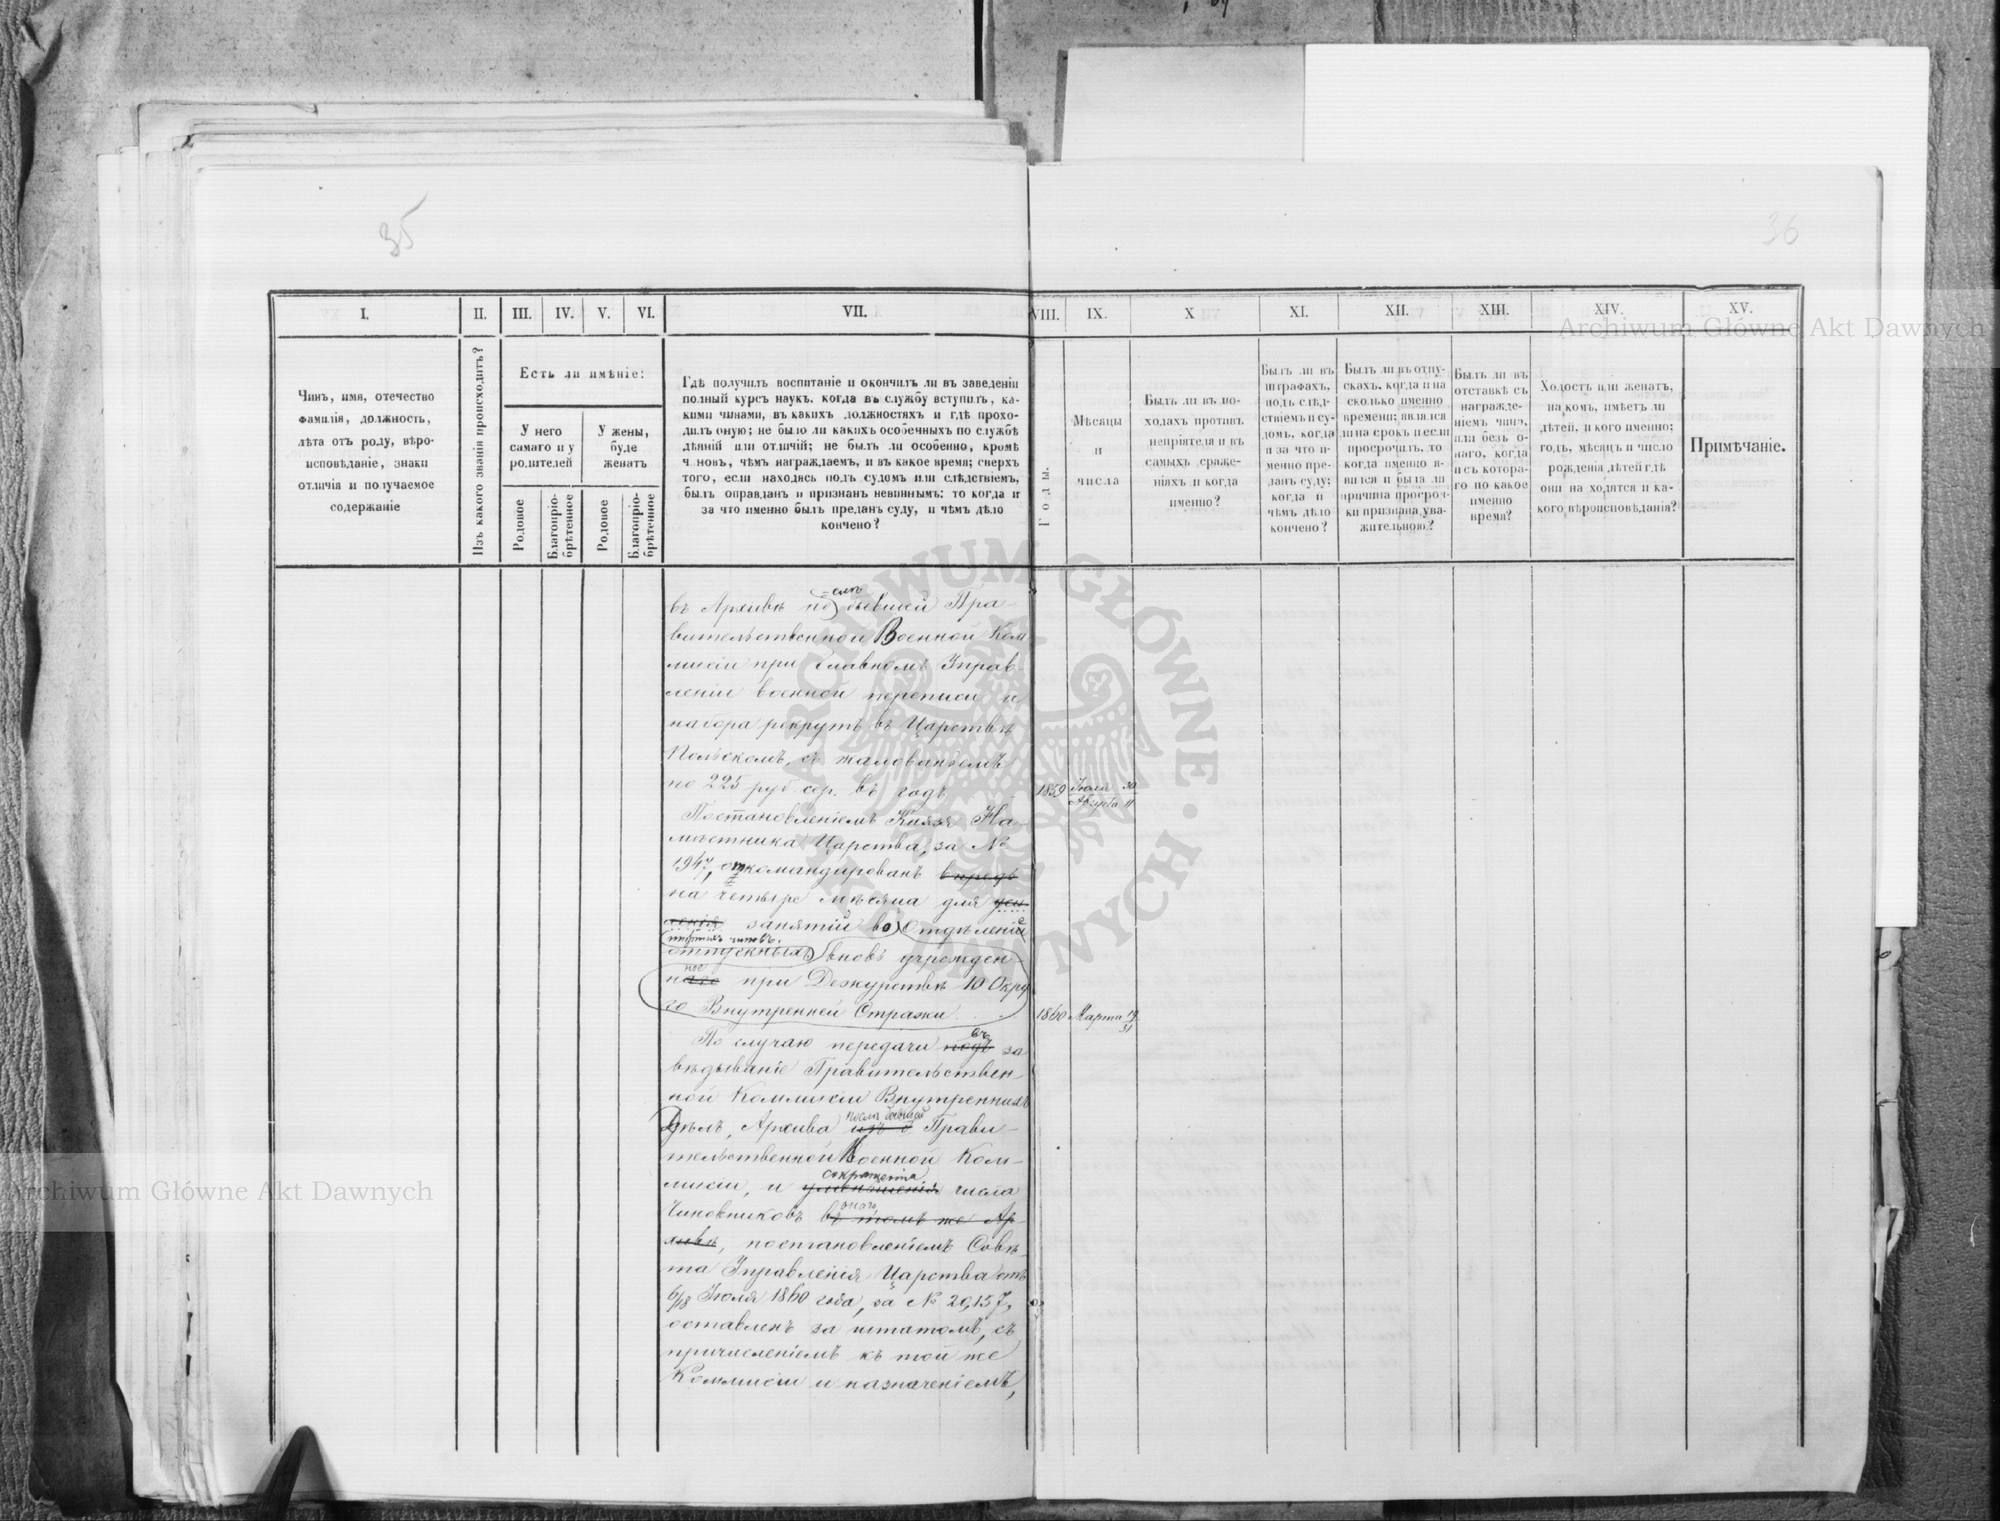 35
36
I.
II.
III.
IV.
V.
VI.
VII.
VIII.
IX.
X
XI.
XII.
XIII.
XIV.
XV.
Чинъ, имя, отечество
фамилія, должность,
лѣта отъ роду, вѣро-
исповѣданіе, знаки
отличія и получаемое
содержаніе
Изъ какого званія происходитъ?
Есть ли имѣніе:
У него
самаго и у
родителей
У жены,
буде
женатъ
Родовое
Благопріо-
брѣтенное
Родовое
Благопріо-
брѣтенное
Гдѣ получилъ воспитаніе и окончилъ ли въ заведеніи
полный курсъ наукъ, когда въ службу вступилъ, ка-
кими чинами, въ какихъ должностяхъ и гдѣ прохо-
дилъ оную; не было ли какихъ особенныхъ по службѣ
дѣяній или отличій; не былъ ли особенно, кромѣ
чиновъ, чѣмъ награждаемъ, и въ какое время; сверхъ
того, если находясь подъ судомъ или слѣдствіемъ,
былъ оправданъ и признанъ невиннымъ: то когда и
за что именно былъ преданъ суду, и чѣмъ дѣло
кончено?
Годы.
Мѣсяцы
и
числа
Былъ ли въ по-
ходахъ противъ
непріятеля и въ
самыхъ сраже-
ніяхъ и когда
именно?
Былъ ли въ
штрафахъ,
подъ слѣд-
ствіемъ и су-
домъ, когда
и за что и-
менно пре-
данъ суду;
когда и
чѣмъ дѣло
кончено?
Былъ ли въ отпу-
скахъ, когда и на
сколько именно
времени; являлся
ли на срокъ и если
просрочилъ, то
когда именно я-
вился и была ли
причина просроч-
ки признана ува-
жительною?
Былъ ли въ
отставкѣ съ
награжде-
ніемъ чина,
или безъ о-
наго, когда
и съ котора-
го по какое
именно
время?
Холостъ или женатъ,
на комъ, имѣетъ ли
дѣтей, и кого именно;
годъ, мѣсяцъ и число
рожденія дѣтей гдѣ
они находятся и ка-
кого вѣроисповѣданія?
Примѣчаніе.
въ Архивѣ по бывшей Пра-
вительственной Военной Ком
мисіи при Главномъ Управ-
леніи военной переписи и
набора рекрутъ въ Царствѣ
Польскомъ, съ жалованьемъ
по 225 руб. сер. въ годъ
1859 Іюля 30
Августа 11
Постановленіемъ Князя На-
мѣстника Царства, за №
1947, откомандированъ
на четыре мѣсяца для
занятій во Отдѣленіе
отпускныхъ вновь учрежден-
ное при Дежурствѣ 10 Окру
га Внутренней Стражи
1860 Марта 19
31
По случаю передачи въ за
вѣдываніе Правительствен-
ной Коммисіи Внутреннихъ
послѣ бывшей
Дѣлъ, Архива Прави-
тельственной Военной Ком-
сокращенія
мисіи, и уменьшенія числа
онаго
Чиновниковъ въ томъ же Ар-
хивѣ, постановленіемъ Совѣ-
та Управленія Царства отъ
6/18 Іюля 1860 года, за № 20,157,
оставленъ за штатомъ, съ
причисленіемъ къ той же
Коммисіи и назначеніемъ,
Archiwum Główne Akt Dawnych
Archiwum Główne Akt Dawnych
ARCHIWUM GŁÓWNE AKT DAWNYCH